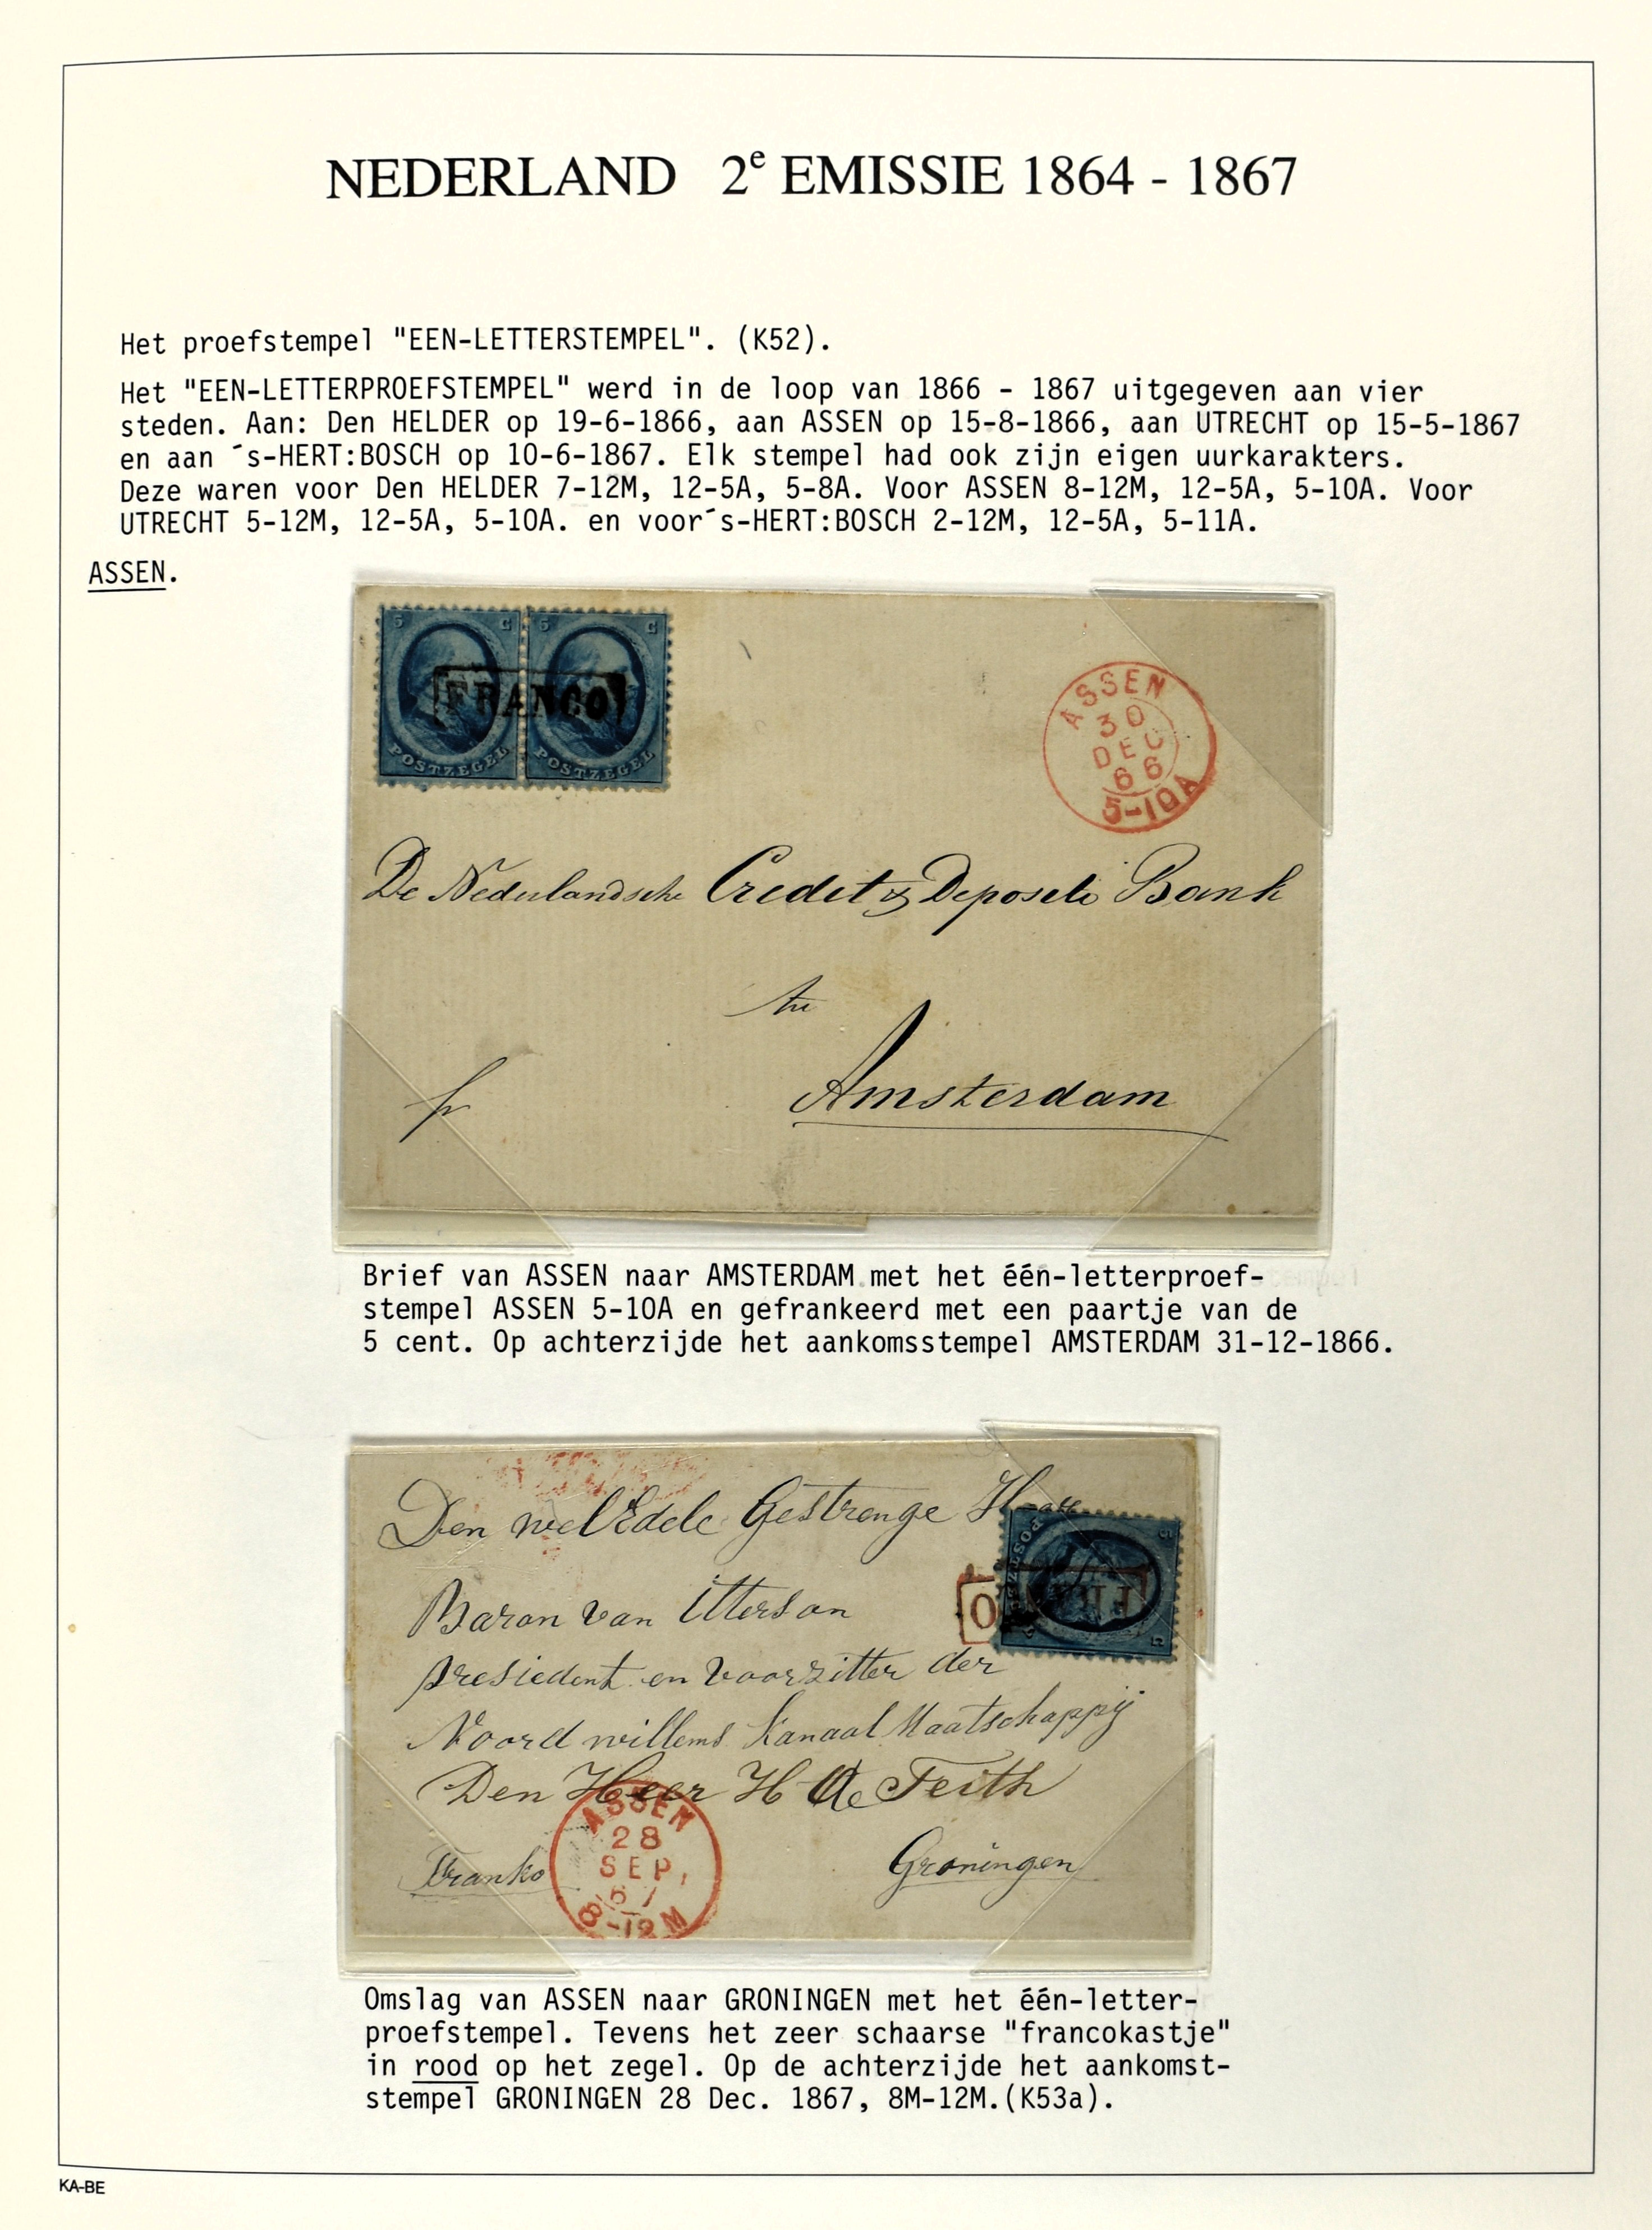 NEDERLAND 2e EMISSIE 1864 - 1867
Het proefstempel "EEN-LETTERSTEMPEL". (K52).
Het "EEN-LETTERPROEFSTEMPEL" werd in de loop van 1866 - 1867 uitgegeven aan vier
steden. Aan: Den HELDER op 19-6-1866, aan ASSEN op 15-8-1866, aan UTRECHT op 15-5-1867
en aan ´s-HERT:BOSCH op 10-6-1867. Elk stempel had ook zijn eigen uurkarakters.
Deze waren voor Den HELDER 7-12M, 12-5A, 5-8A. Voor ASSEN 8-12M, 12-5A, 5-10A. Voor
UTRECHT 5-12M, 12-5A, 5-10A. en voor´s-HERT:BOSCH 2-12M, 12-5A, 5-11A.
ASSEN.
5 C 5 C
FRANCO
POSTZEGEL POSTZEGEL
ASSEN
30
DEC
66
5-10A
De Nederlandsche Credit & Deposito Bank
te
Amsterdam
fr
Brief van ASSEN naar AMSTERDAM met het één-letterproef-
stempel ASSEN 5-10A en gefrankeerd met een paartje van de
5 cent. Op achterzijde het aankomsstempel AMSTERDAM 31-12-1866.
Den welEdele Gestrenge Heer
Baron van Itterson
presiedent en voorzitter der
Noord willems kanaal Maatschappij
Den Heer H de Feith
Franko
Groningen
ASSEN
28
SEP,
67
8-12M
Omslag van ASSEN naar GRONINGEN met het één-letter-
proefstempel. Tevens het zeer schaarse "francokastje"
in rood op het zegel. Op de achterzijde het aankomst-
stempel GRONINGEN 28 Dec. 1867, 8M-12M.(K53a).
KA-BE